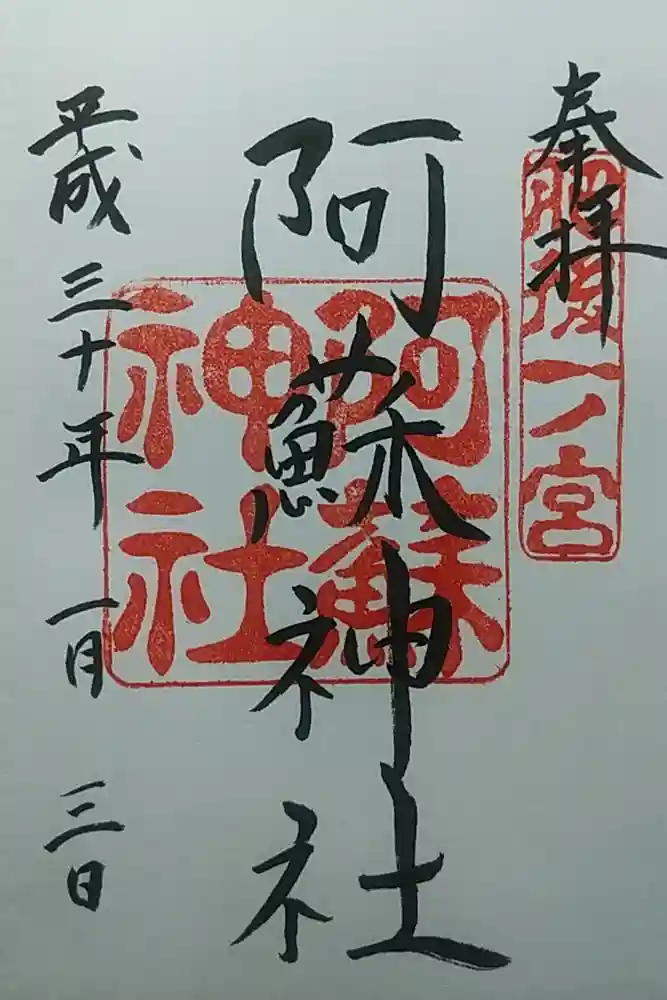 奉拝
肥後一ノ宮
阿蘇神社
阿蘇神社
平成三十年一月三日